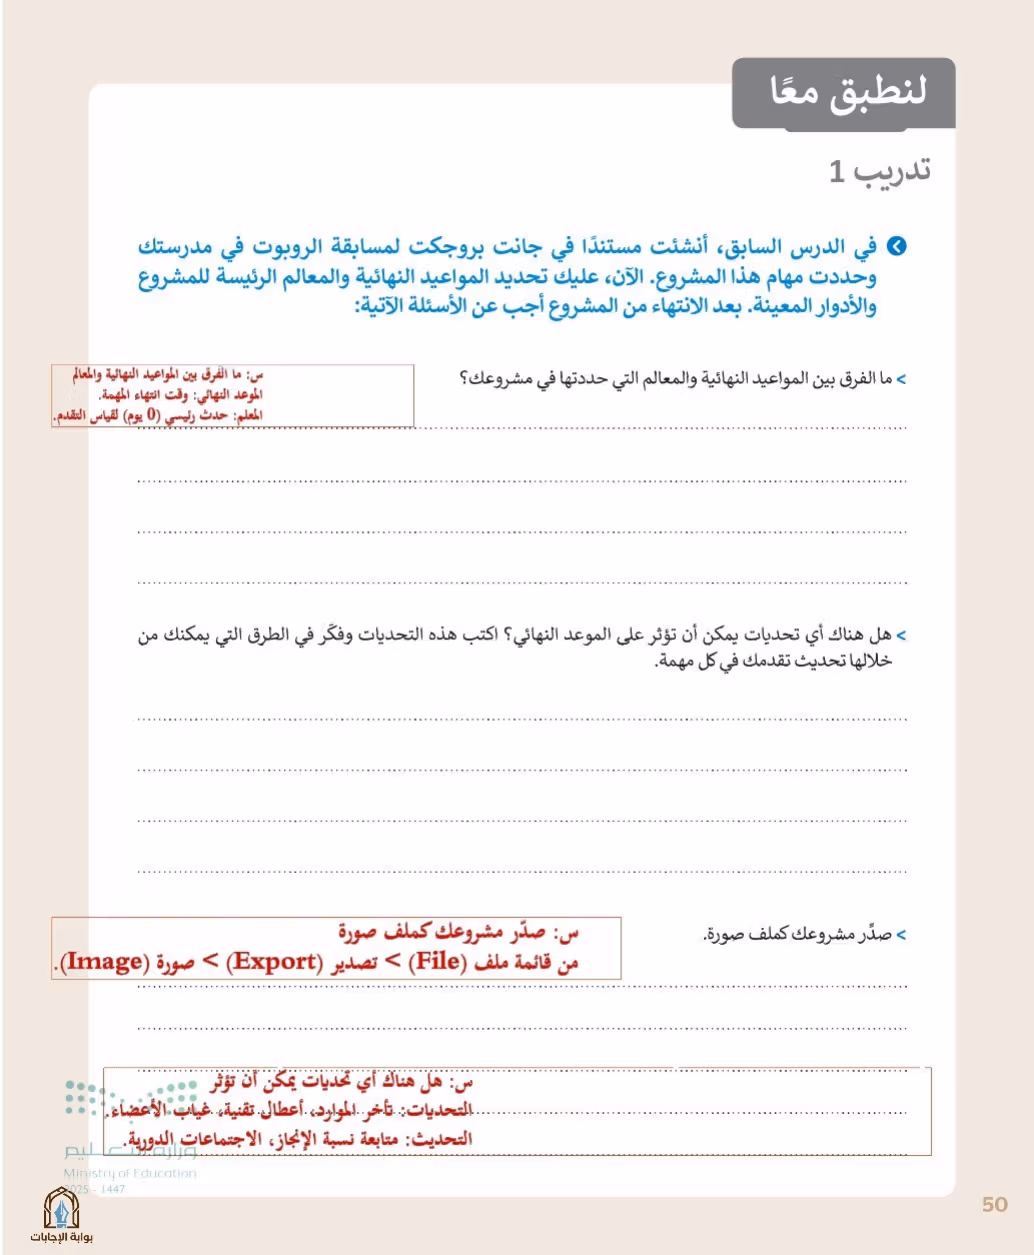 لنطبق معًا
تدريب 1
في الدرس السابق، أنشئت مستندًا في جانت بروجكت لمسابقة الروبوت في مدرستك
وحددت مهام هذا المشروع. الآن، عليك تحديد المواعيد النهائية والمعالم الرئيسة للمشروع
والأدوار المعينة. بعد الانتهاء من المشروع أجب عن الأسئلة الآتية:
> ما الفرق بين المواعيد النهائية والمعالم التي حددتها في مشروعك؟
س: ما الفرق بين المواعيد النهائية والمعالم
الموعد النهائي: وقت انتهاء المهمة.
المعلم: حدث رئيسي (0 يوم) لقياس التقدم.
> هل هناك أي تحديات يمكن أن تؤثر على الموعد النهائي؟ اكتب هذه التحديات وفكّر في الطرق التي يمكنك من
خلالها تحديث تقدمك في كل مهمة.
> صدِّر مشروعك كملف صورة.
س: صدّر مشروعك كملف صورة
من قائمة ملف (File) > تصدير (Export) > صورة (Image).
س: هل هناك أي تحديات يمكن أن تؤثر
التحديات: تأخر الموارد، أعطال تقنية، غياب الأعضاء.
التحديث: متابعة نسبة الإنجاز، الاجتماعات الدورية.
وزارة التعليم
Ministry of Education
2025 - 1447
50
بوابة الإجابات